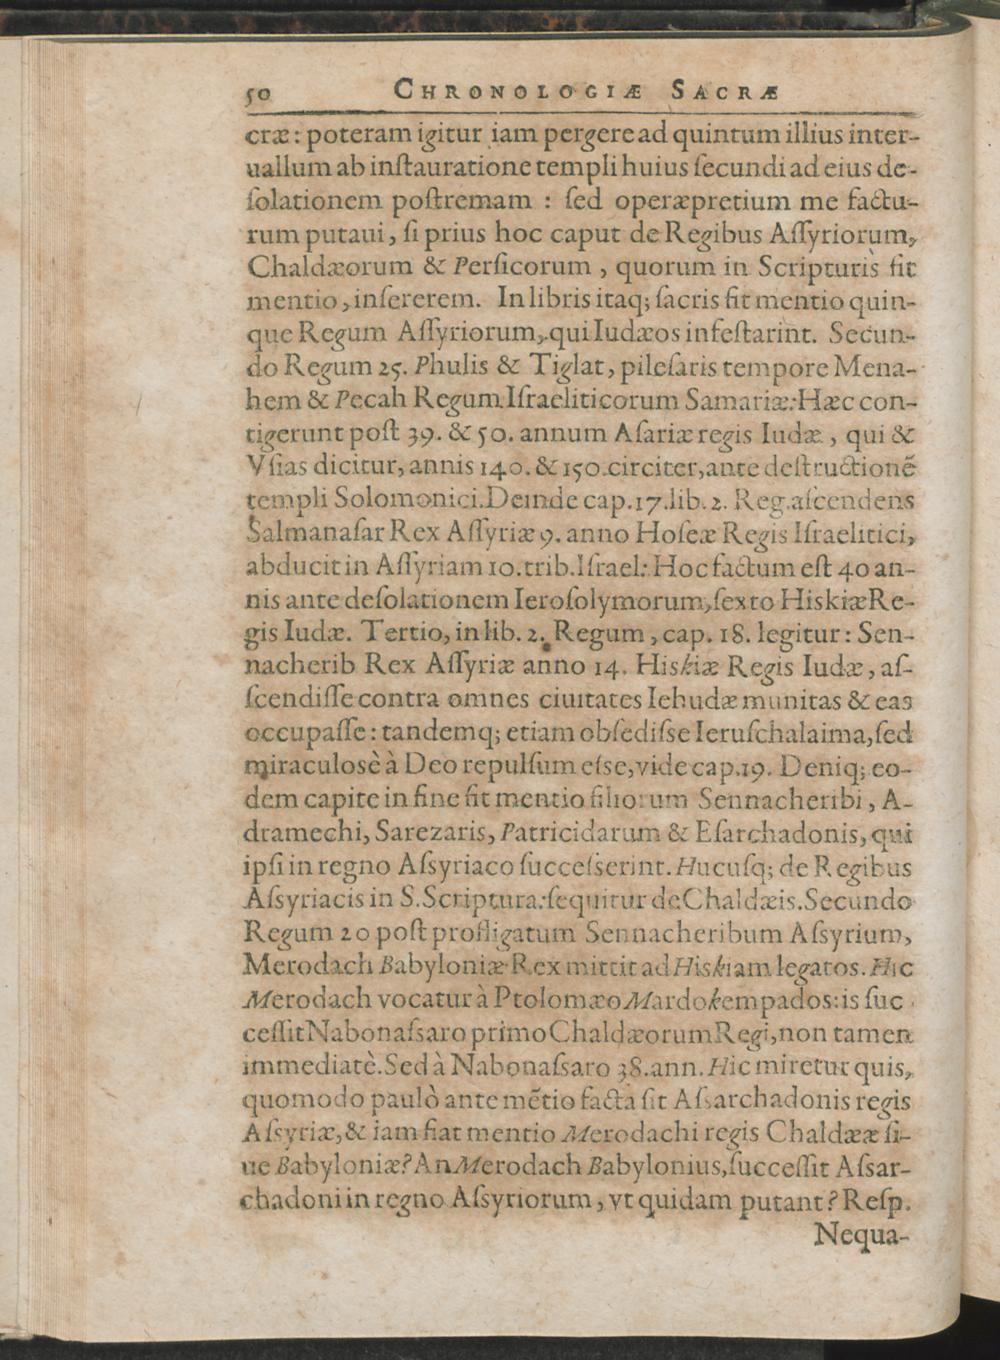 50 CHRONOLOGIÆ SACRÆ
cræ: poteram igitur iam pergere ad quintum illius inter-
uallum ab inſtauratione templi huius ſecundi ad eius de-
ſolationem poſtremam : ſed operæpretium me factu-
rum putaui, ſi prius hoc caput de Regibus Aſſyriorum,
Chaldæorum & Perſicorum , quorum in Scripturis fit
mentio, inſererem. In libris itaq; ſacris fit mentio quin-
que Regum Aſſyriorum, qui Iudæos infeſtarint. Secun-
do Regum 25. Phulis & Tiglat, pileſaris tempore Mena-
hem & Pecah Regum Iſraeliticorum Samariæ: Hæc con-
tigerunt poſt 39. & 50. annum Aſariæ regis Iudæ , qui &
Vſias dicitur, annis 140. & 150. circiter, ante deſtructionẽ
templi Solomonici. Deinde cap. 17. lib. 2. Reg. aſcendens
Salmanaſar Rex Aſſyriæ 9. anno Hoſeæ Regis Iſraelitici,
abducit in Aſſyriam 10. trib. Iſrael: Hoc factum eſt 40 an-
nis ante deſolationem Ieroſolymorum, ſexto Hiskiæ Re-
gis Iudæ. Tertio, in lib. 2. Regum , cap. 18. legitur: Sen-
nacherib Rex Aſſyriæ anno 14. Hiskiæ Regis Iudæ, aſ-
ſcendiſſe contra omnes ciuitates Iehudæ munitas & eas
occupaſſe: tandemq; etiam obſediſse Ieruſchalaima, ſed
miraculosè à Deo repulſum eſse, vide cap. 19. Deniq; eo-
dem capite in fine fit mentio filiorum Sennacheribi , A-
dramechi, Sarezaris, Patricidarum & Eſarchadonis, qui
ipſi in regno Aſsyriaco ſucceſserint. Hucuſq; de Regibus
Aſsyriacis in S. Scriptura: ſequitur de Chaldæis. Secundo
Regum 20 poſt profligatum Sennacheribum Aſsyrium,
Merodach Babyloniæ Rex mittit ad Hiskiam legatos. Hic
Merodach vocatur à Ptolomæo Mardokempados: is ſuc
ceſſit Nabonaſsaro primo Chaldæorum Regi, non tamen
immediatè. Sed à Nabonaſsaro 38. ann. Hic miretur quis,
quomodo paulò ante mẽtio facta ſit Aſsarchadonis regis
Aſsyriæ, & iam fiat mentio Merodachi regis Chaldææ ſi-
ue Babyloniæ? An Merodach Babylonius, ſucceſſit Aſsar-
chadoni in regno Aſsyriorum, vt quidam putant? Reſp.
Nequa-